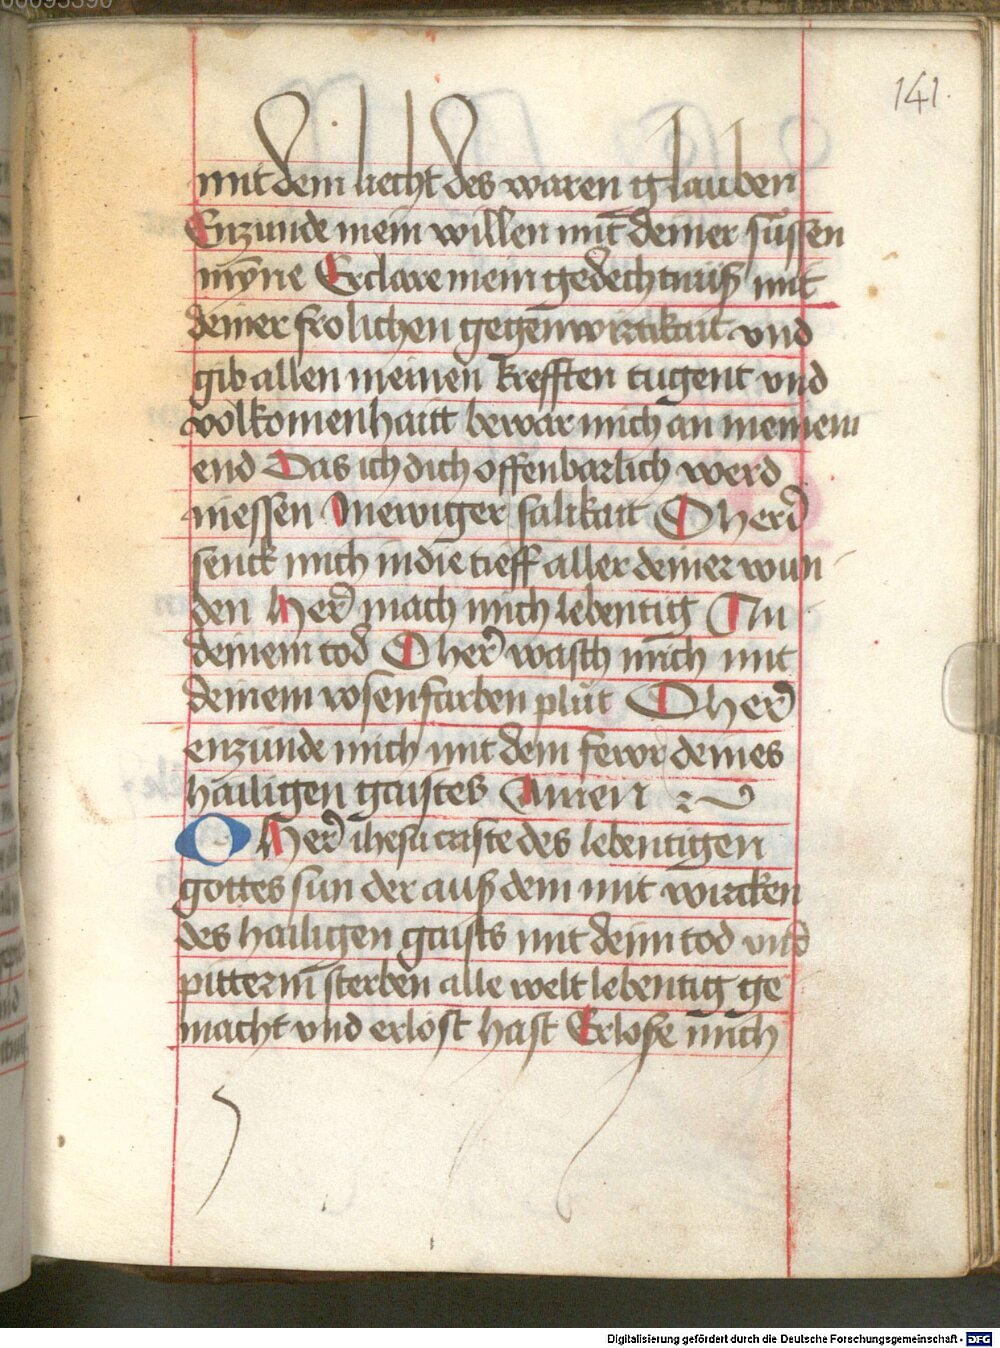 141.
mit dem liecht des waren glauben
Enzunde mein willen mit deiner süssen
myne Erclare mein gedechtnuß mit
deiner frolichen gegenwirtikait vnd
gib allen meinen krefften tugent vnd
volkomenhaitt bewar mich an meinem
end Das ich dich offenbarlich werd
niessen In ewiger salikait O her
senck mich in die tieff aller deiner wun
den Her mach mich lebentig In
deinem tod O her wasch mich mit
deinem rosenfarben plůt O her
enzünde mich mit dem fewr deines
hailigen gaistes Amen
O Her ihesu criste des lebentigen
gottes sun der auß dem mit wircken
des hailigen gaists mit deim tod vnd
pitterm sterben alle welt lebentig ge
macht vnd erlost hast Erlose mich
Digitalisierung gefördert durch die Deutsche Forschungsgemeinschaft - DFG